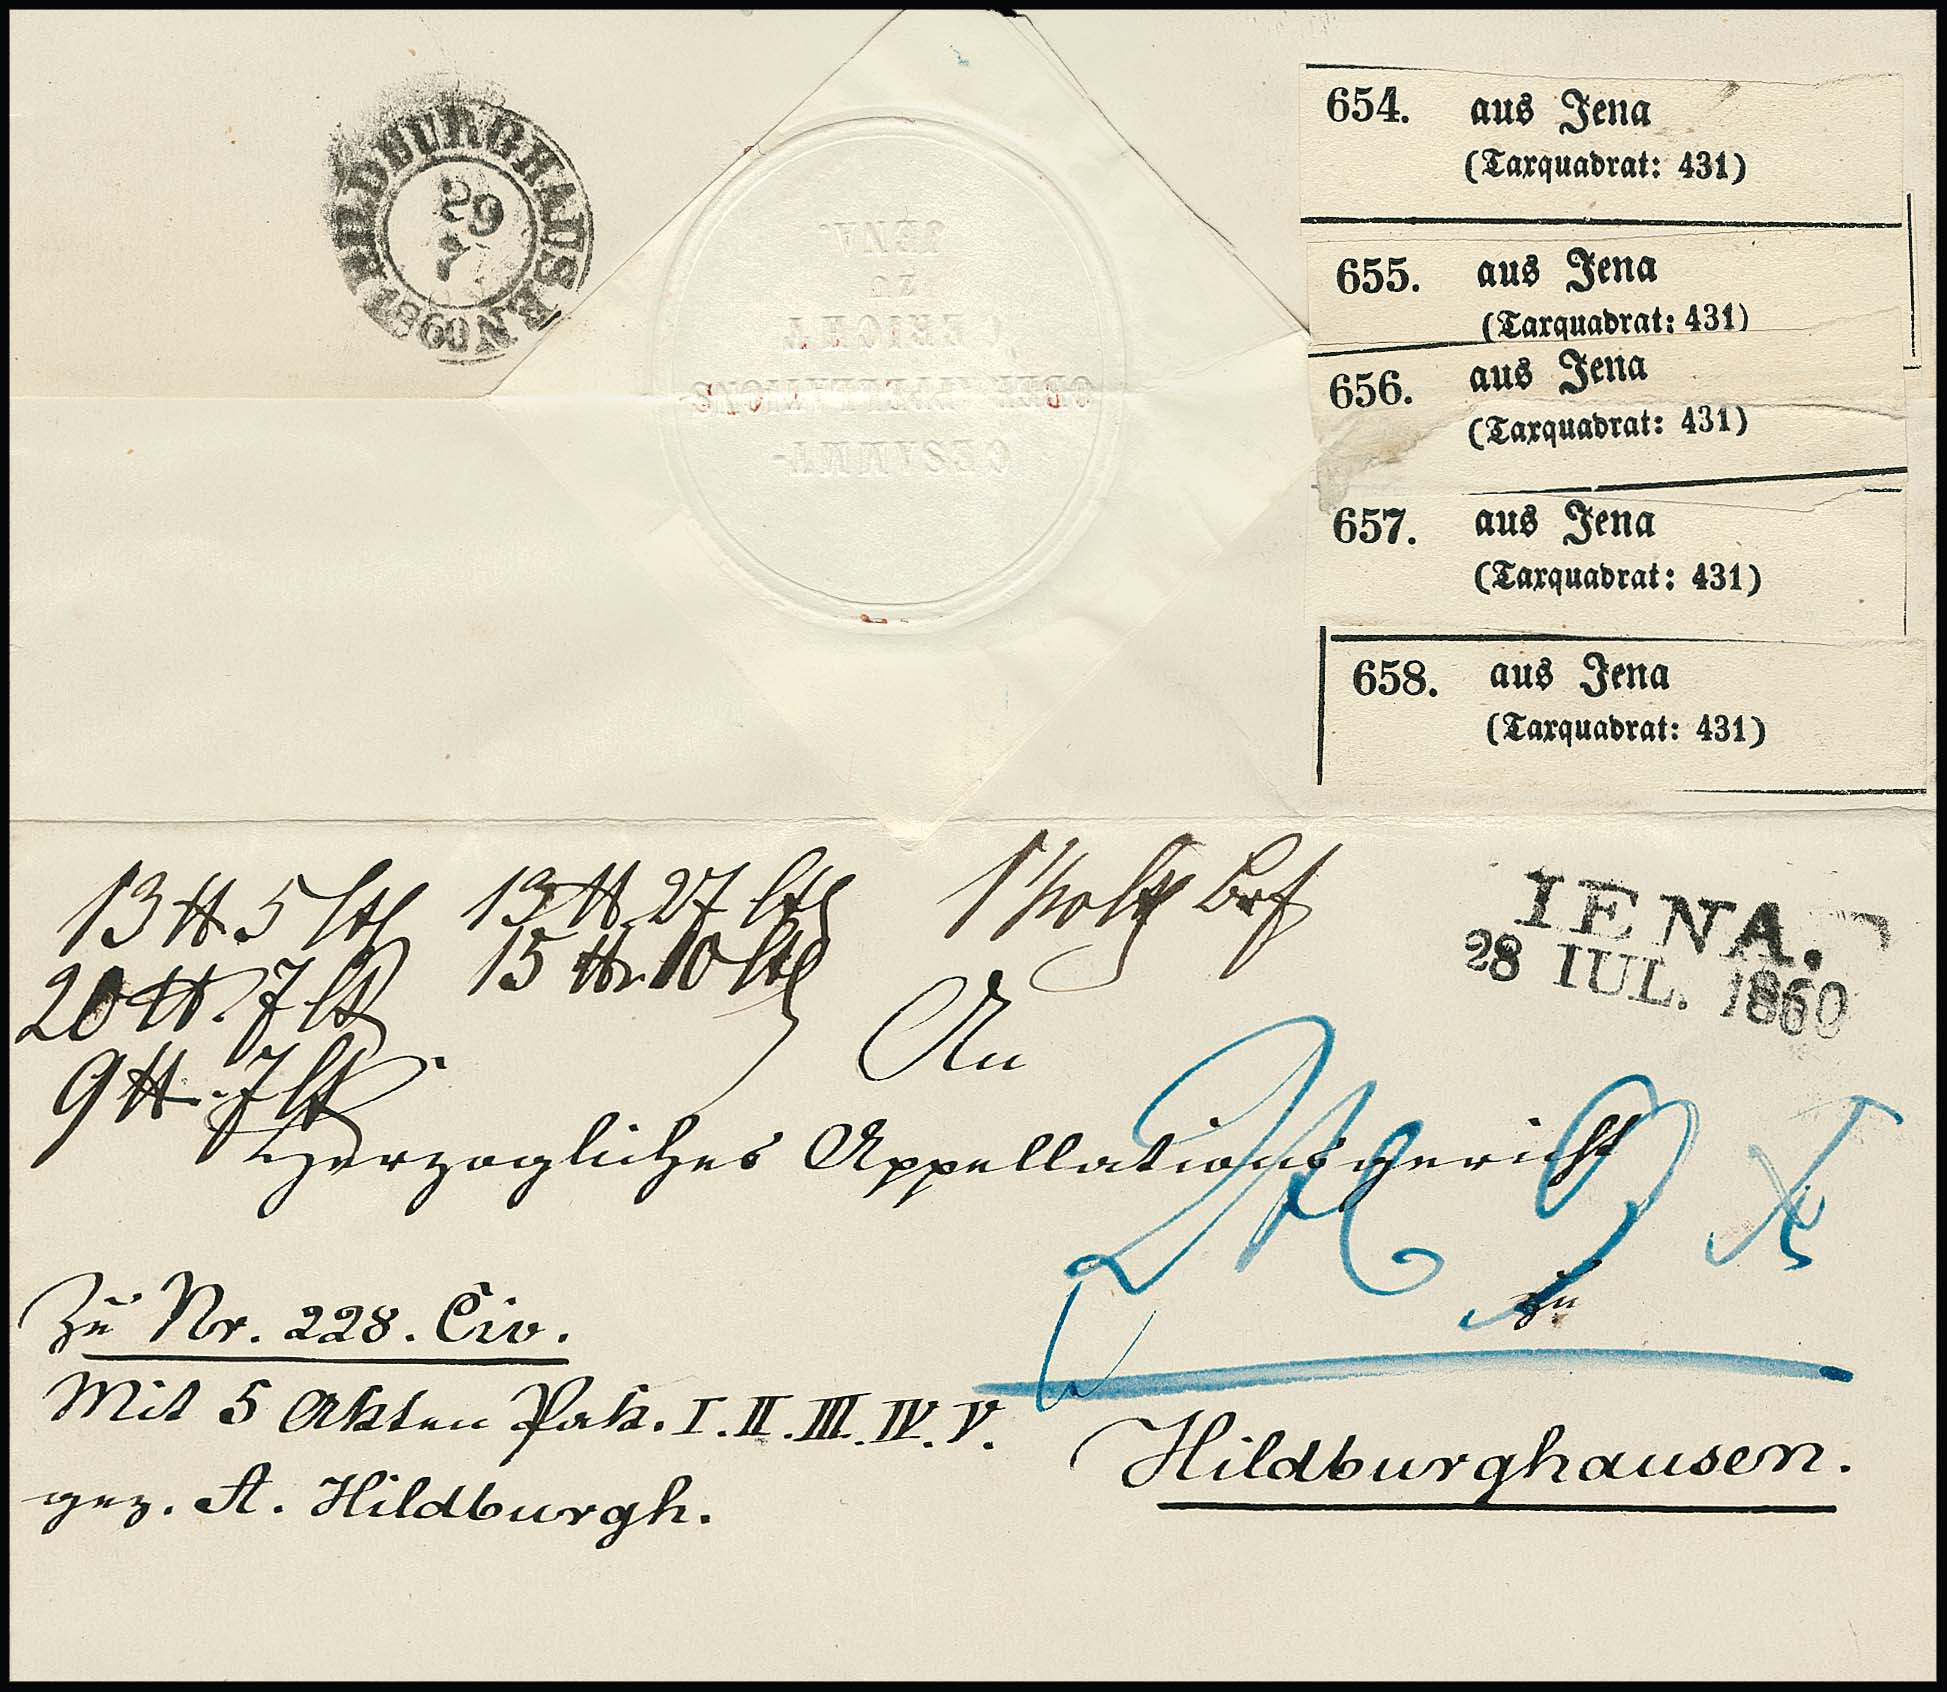 HILDBURGHAUSEN
29
7
1860
GESAMMT-
OBER-APPELLATIONS
GERICHT
ZU
JENA.
654. aus Jena
(Taxquadrat: 431)
655. aus Jena
(Taxquadrat: 431)
656. aus Jena
(Taxquadrat: 431)
657. aus Jena
(Taxquadrat: 431)
658. aus Jena
(Taxquadrat: 431)
13 ℔ 5 lth
13 ℔ 27 lth
20 ℔ 7 lth
15 ℔ 10 lth
9 ℔ 7 lth
IENA.
28 IUL. 1860
An
Herzogliches Appellationsgericht
zu
Hildburghausen.
Zu Nr. 228. Civ.
Mit 5 Akten Pak. I. II. III. IV. V.
gez. A. Hildburgh.